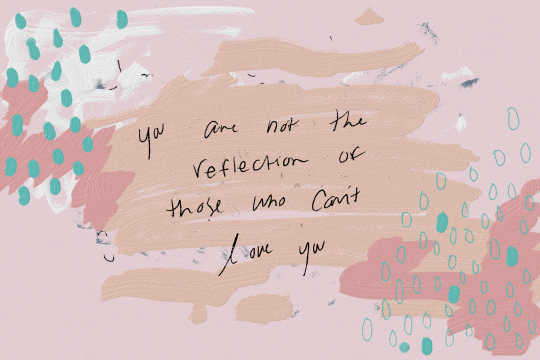 you are not the
reflection of
those who can't
love you